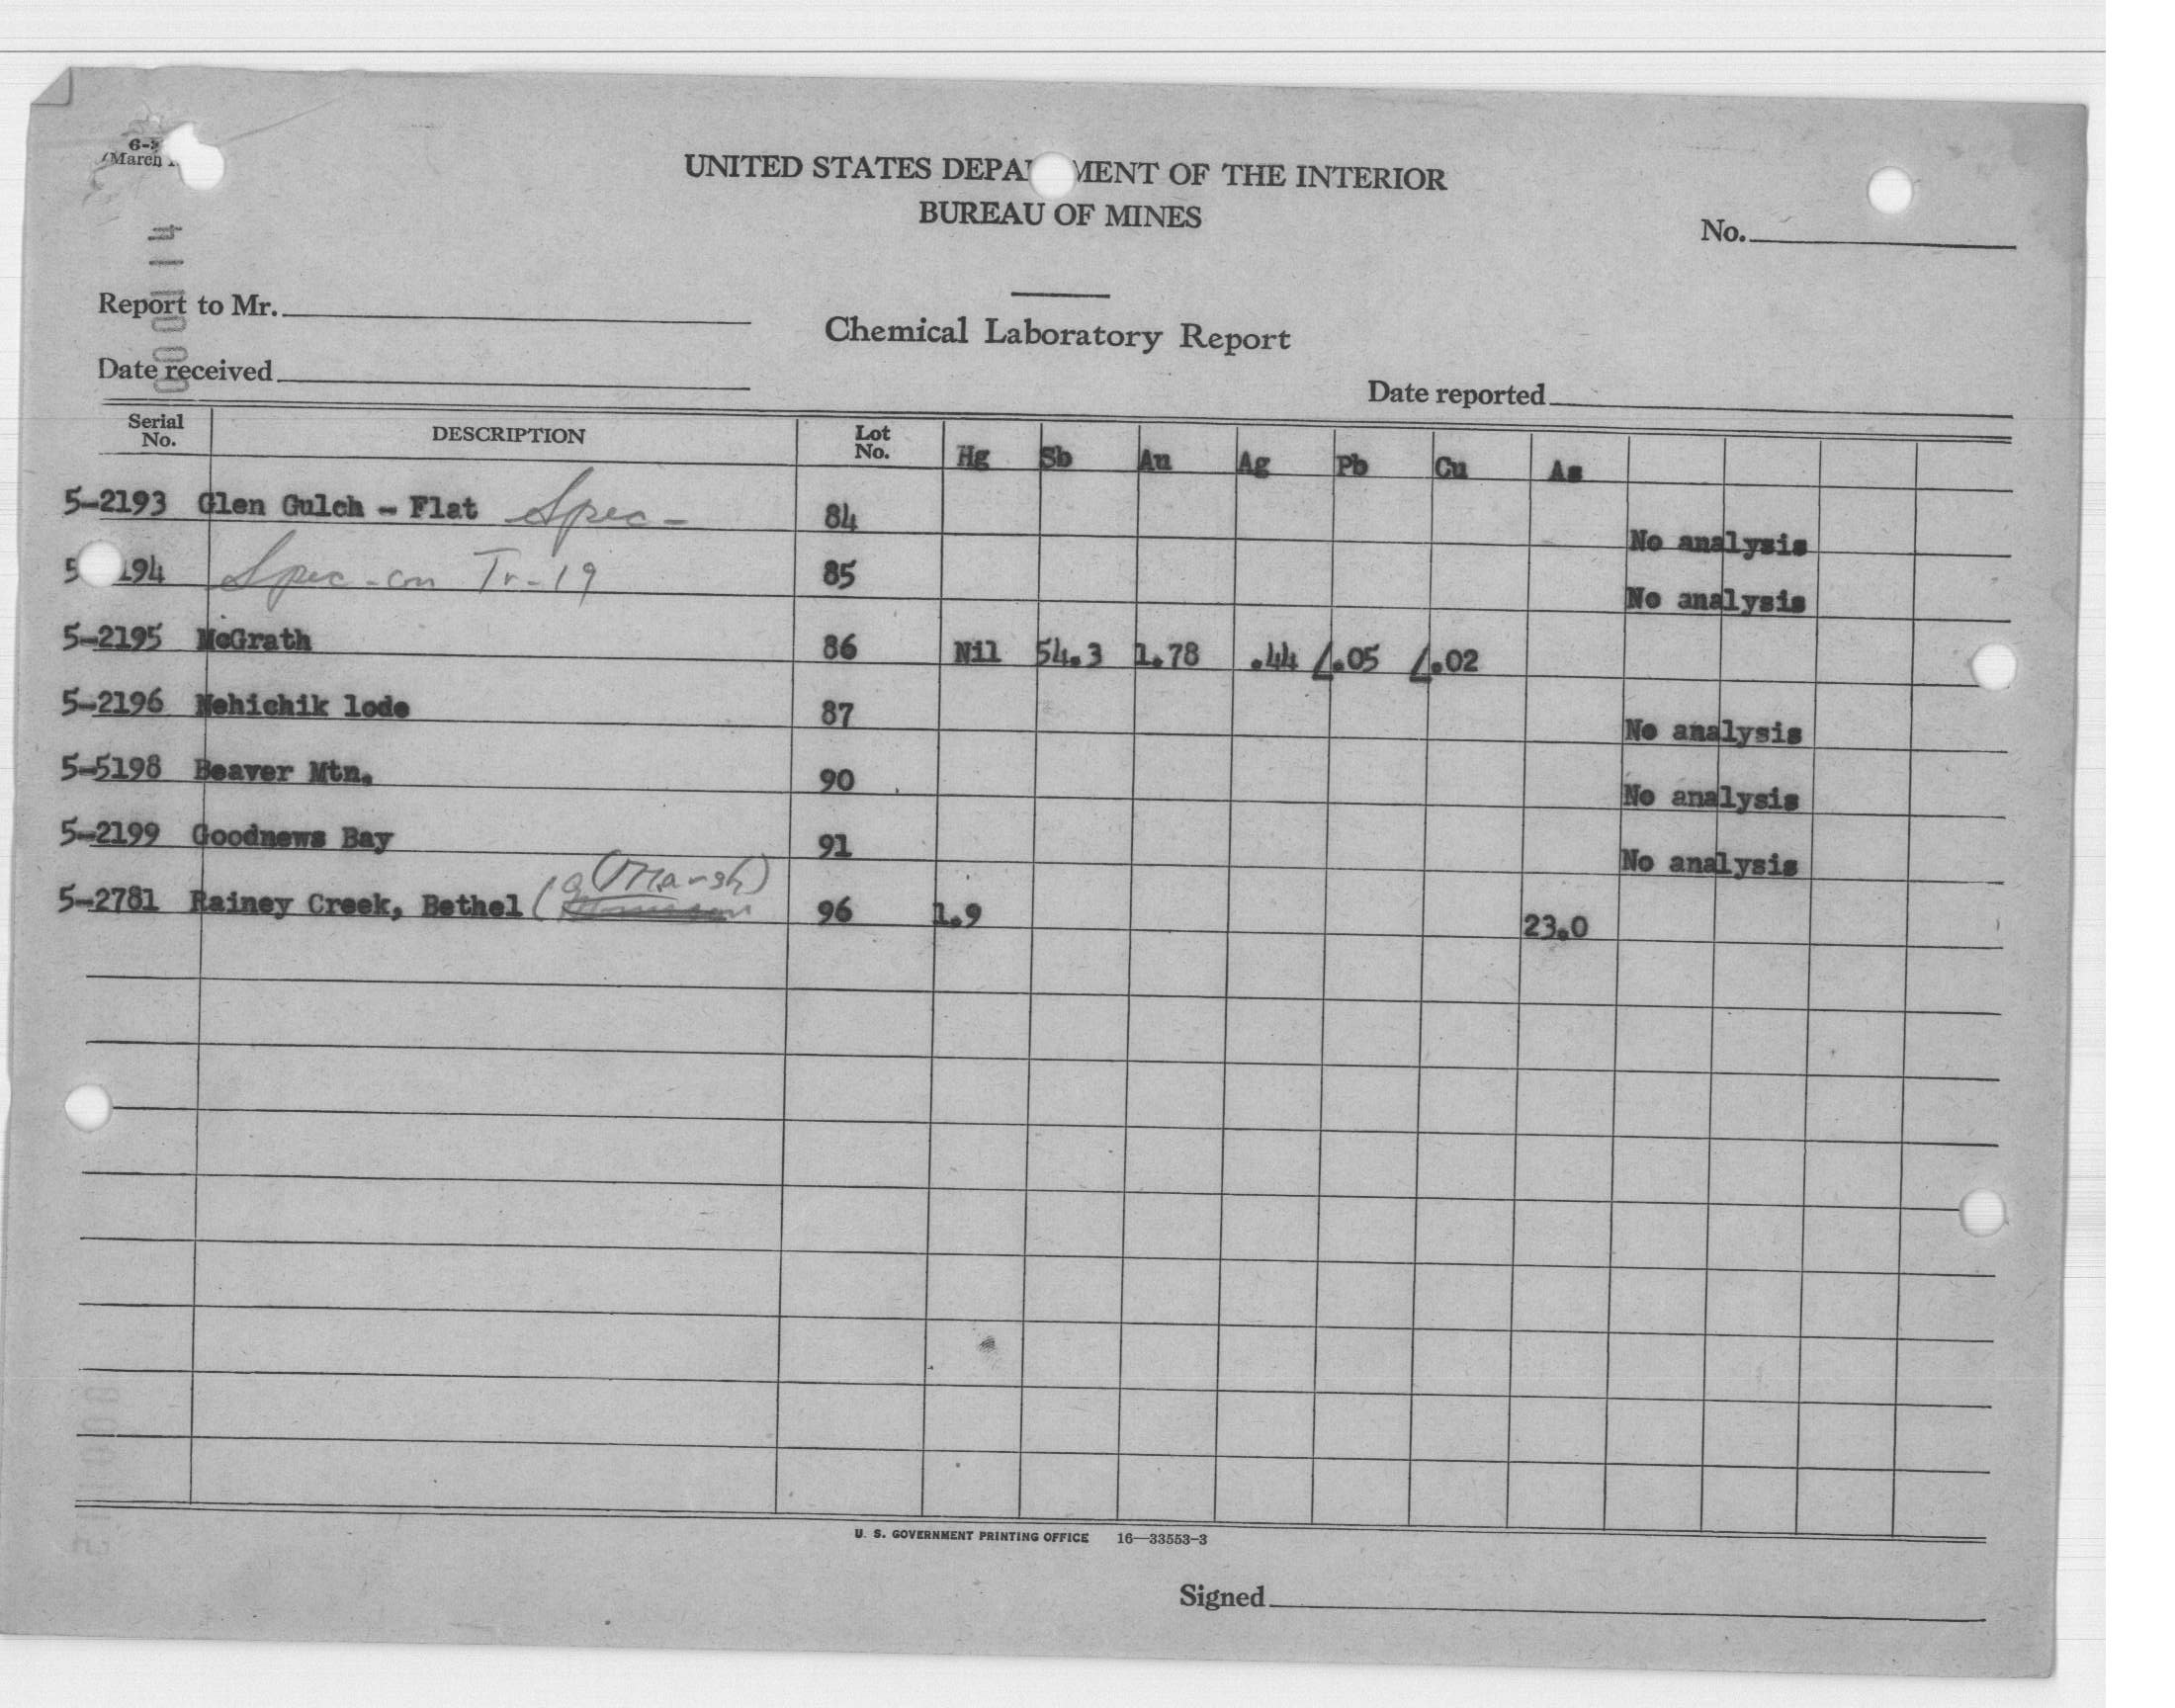 6-
(March
UNITED STATES DEPA MENT OF THE INTERIOR
BUREAU OF MINES
No.
4 1 1 0 0 0
Report to Mr.
Chemical Laboratory Report
Date received
Date reported
Serial No. DESCRIPTION Lot No. Hg Sb Au Ag Pb Cu As
5-2193 Glen Gulch - Flat Spec- 84 No analysis
5 194 Spec-con Tr-19 85 No analysis
5-2195 McGrath 86 Nil 54.3 1.78 .44 /.05 /.02
5-2196 Nehichik lode 87 No analysis
5-5198 Beaver Mtn. 90 No analysis
5-2199 Goodnews Bay 91 No analysis
5-2781 Rainey Creek, Bethel (a (Marsh) 96 1.9 23.0
U. S. GOVERNMENT PRINTING OFFICE 16—33553-3
Signed